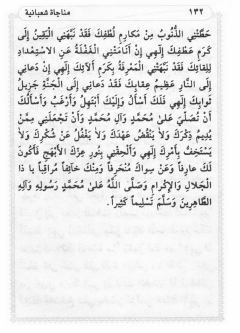 ١٣٢ مناجاة شعبانية
حَطَّتْنِي الذُّنُوبُ مِنْ مَكَارِمِ لُطْفِكَ فَقَدْ نَبَّهَنِي الْيَقِينُ إِلَى
كَرَمِ عَطْفِكَ إِلَهِي إِنْ أَنَامَتْنِي الْغَفْلَةُ عَنِ الاسْتِعْدَادِ
لِلِقَائِكَ فَقَدْ نَبَّهَتْنِي الْمَعْرِفَةُ بِكَرَمِ آلائِكَ إِلَهِي إِنْ دَعَانِي
إِلَى النَّارِ عَظِيمُ عِقَابِكَ فَقَدْ دَعَانِي إِلَى الْجَنَّةِ جَزِيلُ
ثَوَابِكَ إِلَهِي فَلَكَ أَسْأَلُ وَإِلَيْكَ أَبْتَهِلُ وَأَرْغَبُ وَأَسْأَلُكَ
أَنْ تُصَلِّيَ عَلَىٰ مُحَمَّدٍ وَآلِ مُحَمَّدٍ وَأَنْ تَجْعَلَنِي مِمَّنْ
يُدِيمُ ذِكْرَكَ وَلاَ يَنْقُضُ عَهْدَكَ وَلاَ يَغْفُلُ عَنْ شُكْرِكَ وَلاَ
يَسْتَخِفُّ بِأَمْرِكَ إِلَهِي وَأَلْحِقْنِي بِنُورِ عِزِّكَ الأَبْهَجِ فَأَكُونَ
لَكَ عارِفاً وَعَنْ سِوَاكَ مُنْحَرِفاً وَمِنْكَ خَائِفاً مُرَاقِباً يا ذا
الْجَلالِ وَالإِكْرامِ وَصَلَّى اللَّهُ عَلىٰ مُحَمَّدٍ رَسُولِهِ وَآلِهِ
الطَّاهِرِينَ وَسَلَّمَ تَسْلِيماً كَثِيراً.